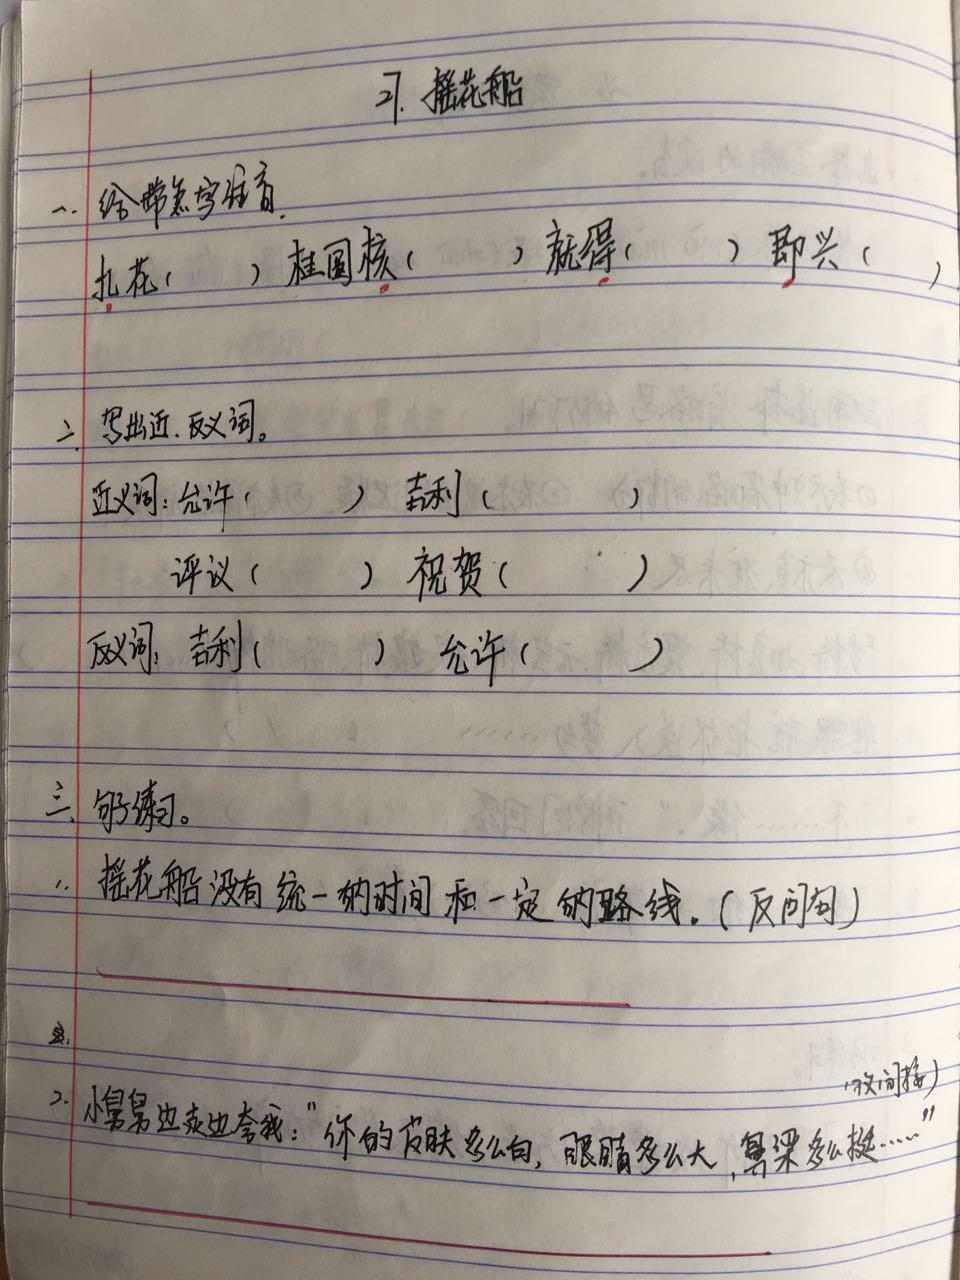 27. 摇花船
一、给带点字注音.
扎花（ ）桂圆核（ ）就得（ ）即兴（ ）
二、写出近.反义词。
近义词：允许（ ）吉利（ ）
评议（ ）祝贺（ ）
反义词：吉利（ ）允许（ ）
三、句子练习。
1. 摇花船没有统一的时间和一定的路线.（反问句）
（改间接）
2. 小舅舅边走边夸我："你的皮肤多么白，眼睛多么大，鼻梁多么挺……"